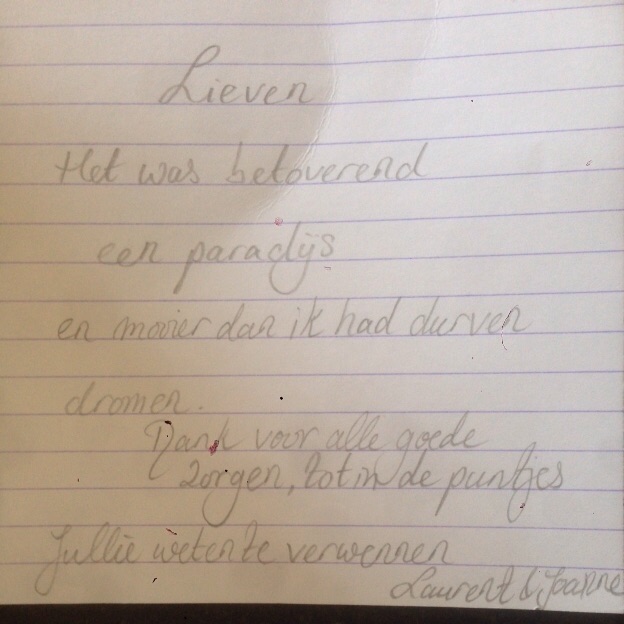 Lieven
Het was betoverend
een paradijs
en mooier dan ik had durven
dromen.
Dank voor alle goede
zorgen, tot in de puntjes
Jullie weten te verwennen
Laurent & Joanne